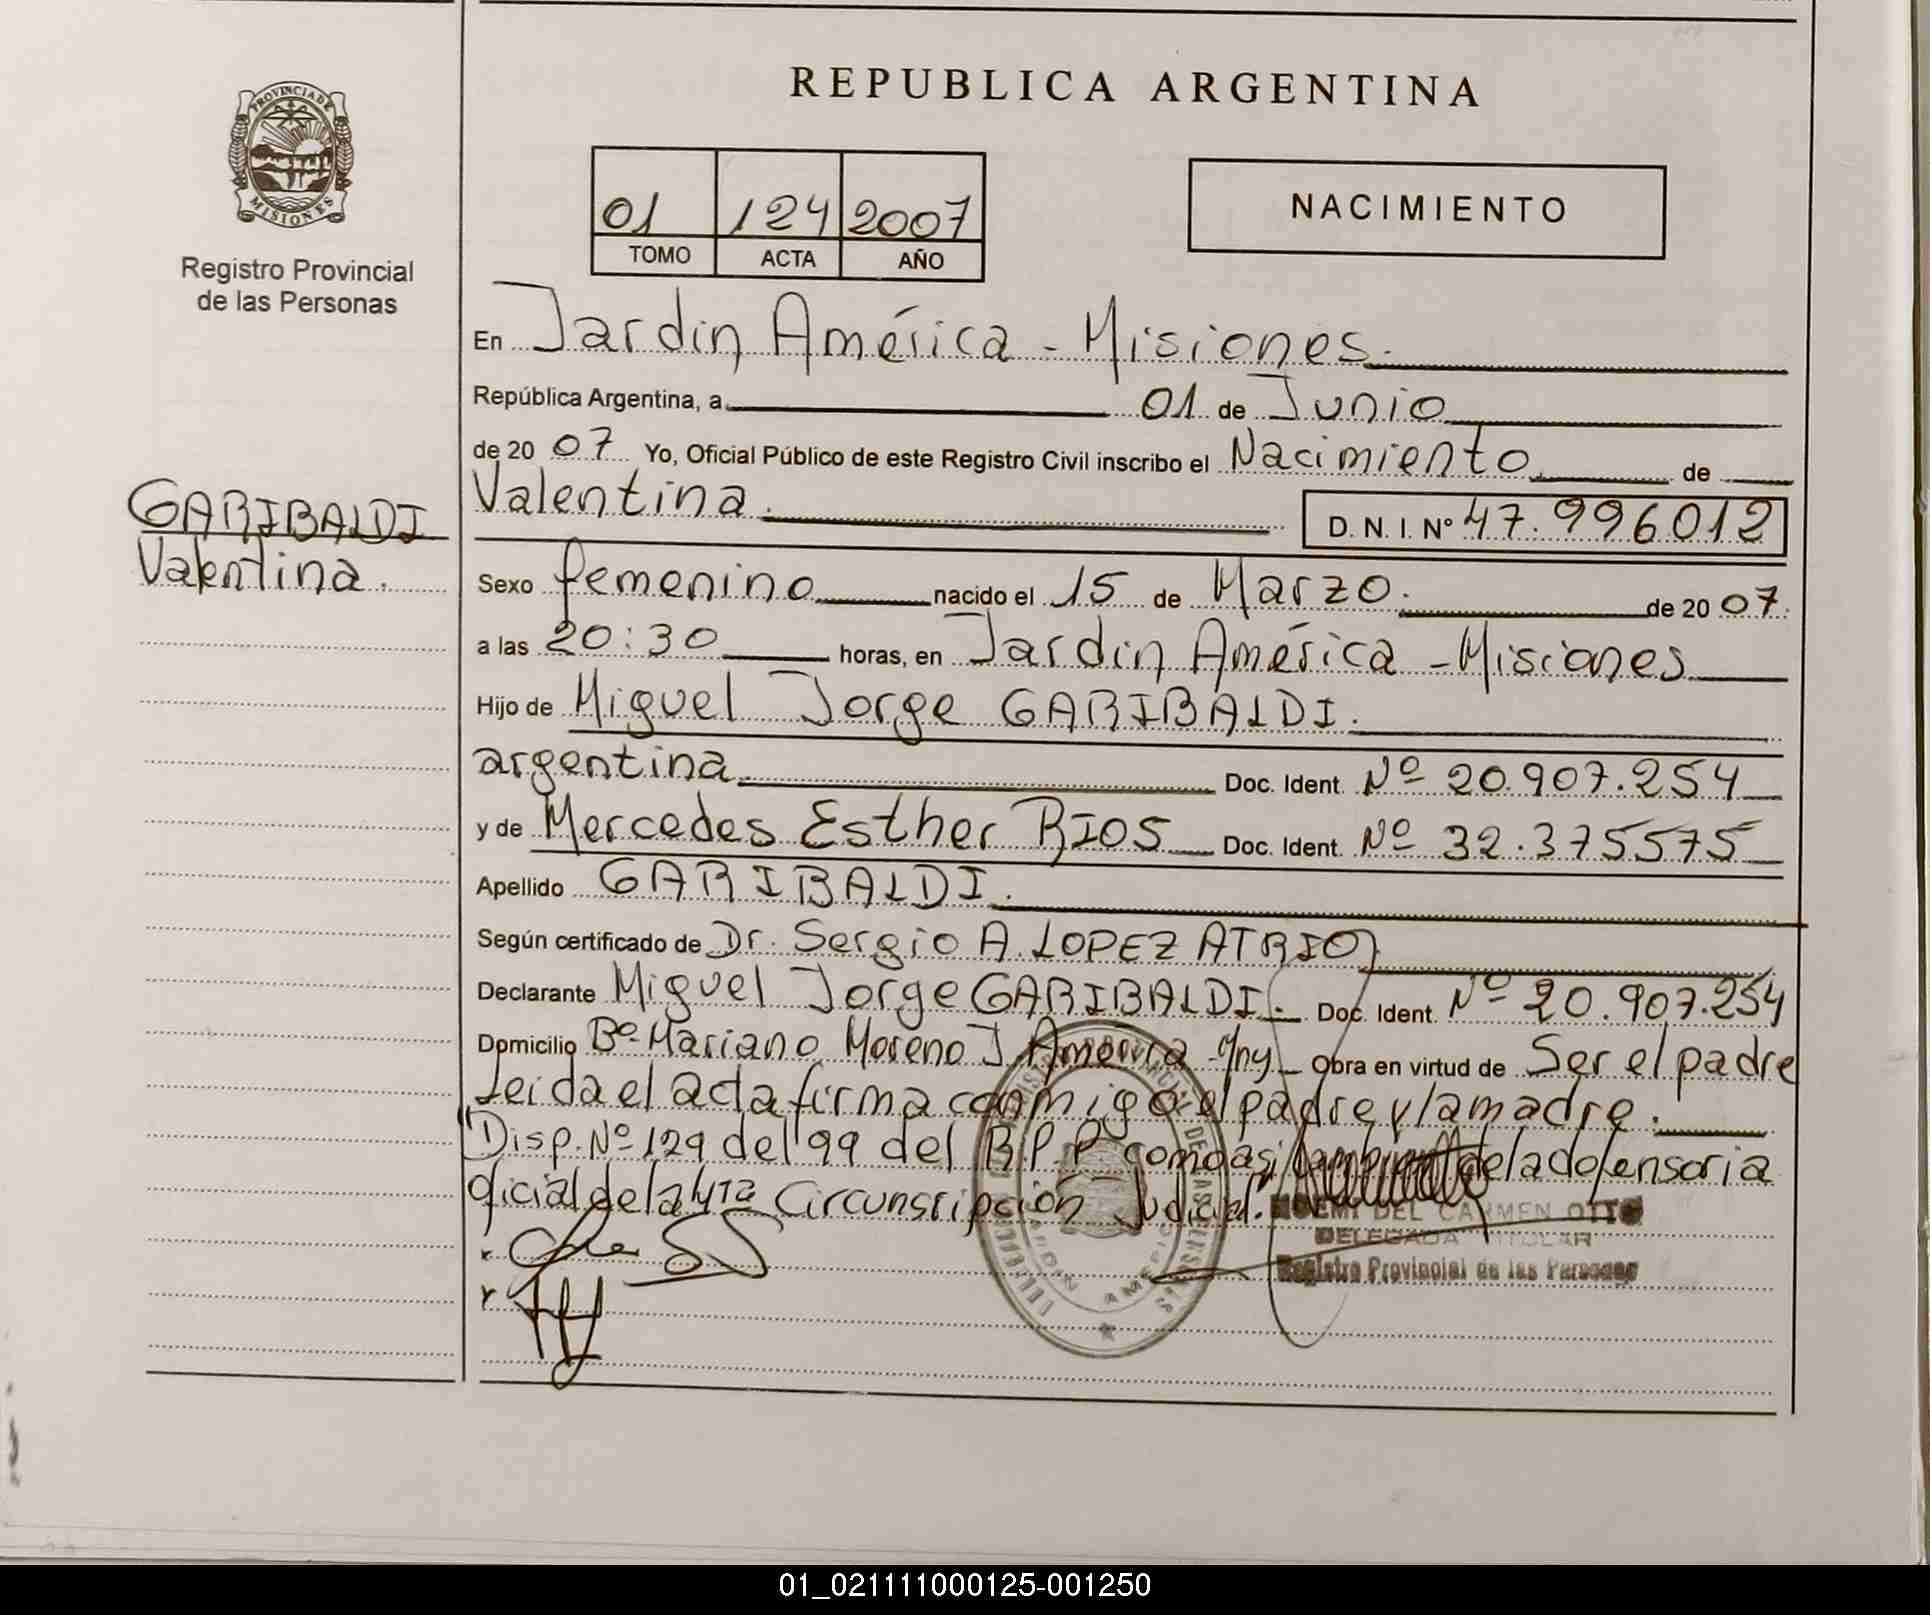 REPUBLICA ARGENTINA
PROVINCIA DE MISIONES
Registro Provincial
de las Personas
01 124 2007
TOMO ACTA AÑO
NACIMIENTO
En Jardin América - Misiones.
República Argentina, a 01 de Junio
de 20 07 Yo, Oficial Público de este Registro Civil inscribo el Nacimiento de
GARIBALDI
Valentina.
Valentina. D. N. I. Nº 47.996012
Sexo femenino nacido el 15 de Marzo. de 20 07.
a las 20:30 horas, en Jardin América - Misiones
Hijo de Miguel Jorge GARIBALDI.
argentina. Doc. Ident. Nº 20.907.254
y de Mercedes Esther RIOS Doc. Ident. Nº 32.375575
Apellido GARIBALDI.
Según certificado de Dr. Sergio A. LOPEZ ATRIO
Declarante Miguel Jorge GARIBALDI. Doc. Ident. Nº 20.907.254
Domicilio Bº Mariano Moreno J. América Obra en virtud de Ser el padre
Leida el acta firma conmigo el padre y la madre.
Disp. Nº 129 del 99 del R.P.P. como asi de la defensoria
oficial de la 4ta Circunscripción Judicial.
NOEMI DEL CARMEN OTTO
DELEGADA TITULAR
Registro Provincial de las Personas
JARDIN AMERICA
01_021111000125-001250